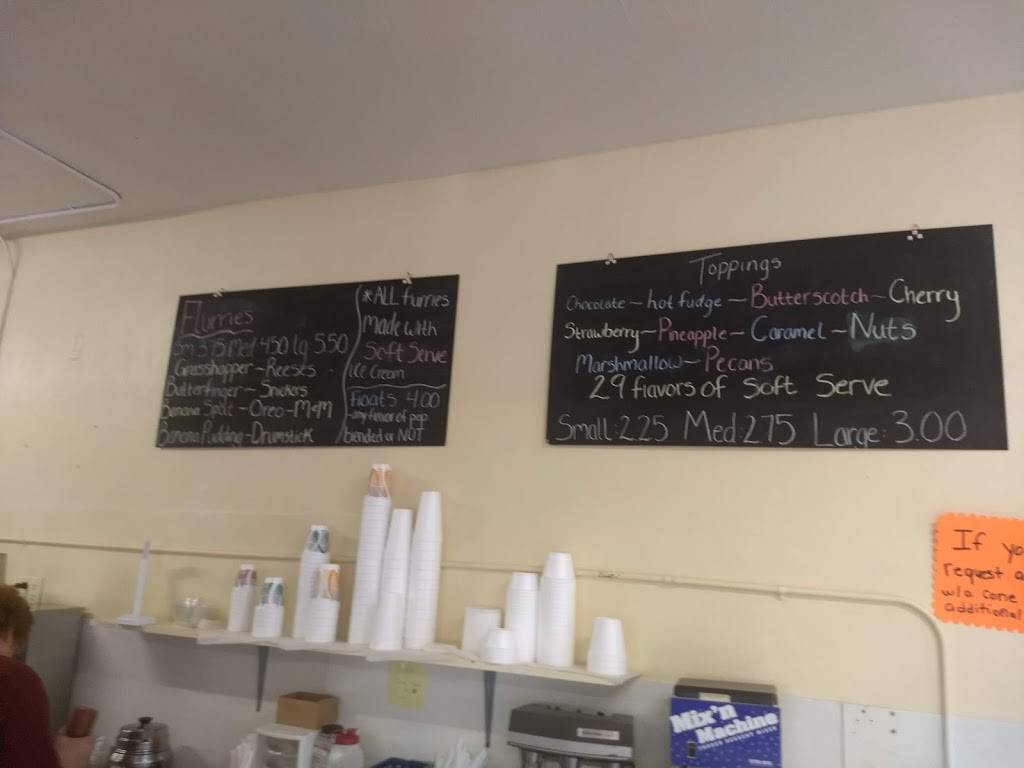 Flurries
Sm 3.75 Med 4.50 Lg 5.50
Grasshopper - Reeses
Butterfinger - Snickers
Banana Split - Oreo - M&M
Banana Pudding - Drumstick
*ALL flurries
made with
Soft Serve
Ice Cream
Floats 4.00
-any flavor of pop
blended or NOT
Toppings
Chocolate - hot fudge - Butterscotch - Cherry
Strawberry - Pineapple - Caramel - Nuts
Marshmallow - Pecans
29 flavors of Soft Serve
Small: 2.25 Med: 2.75 Large: 3.00
If yo
request a
w/a cone
additional
Mix'n
Machine